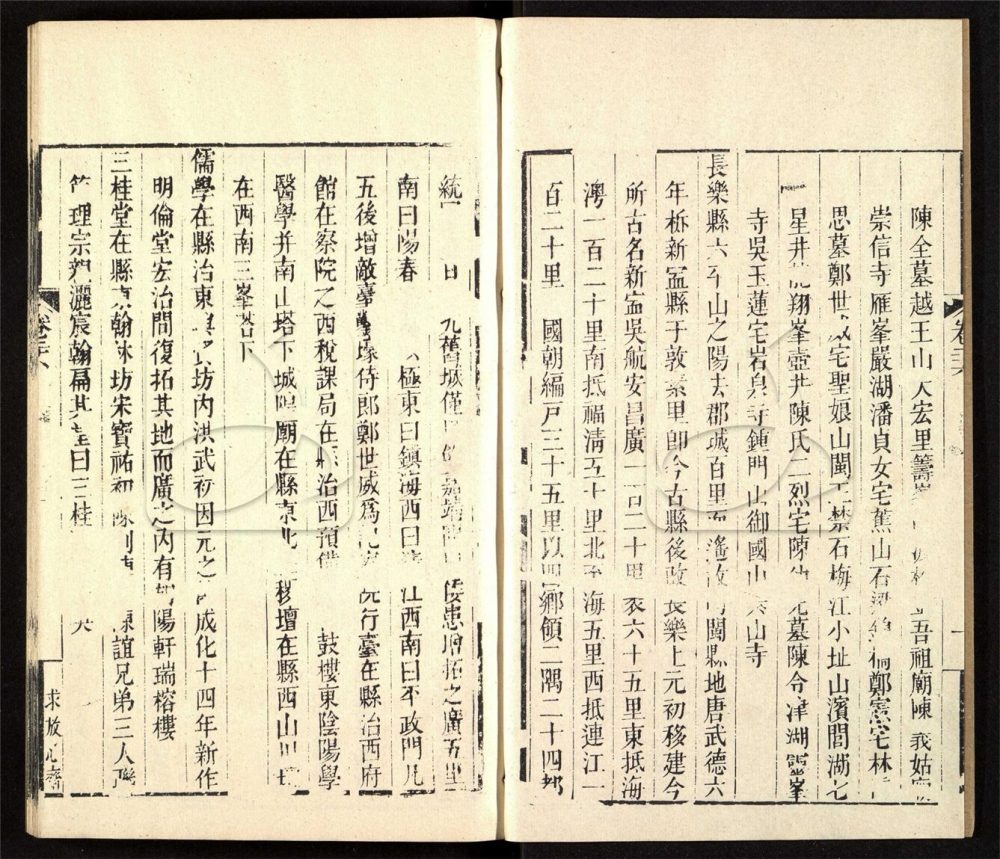 陳全墓越王山大宏里籌峯吾祖廟陳我姑
崇信寺雁峯嚴湖潘貞女宅蕉山石梁桐鄭憲宅林
思墓鄭世威宅聖娘山閩王禁石梅江小址山濱閭湖七
星井龍翔峯壺井陳氏二烈宅陳墓陳令津湖靈峯
寺吳玉蓮宅岩泉寺鍾門山御國山山寺
長樂縣六平山之陽去郡城百里而遙故閩縣地唐武德六
年析新寍縣于敦素里卽今古縣後改長樂上元初移建今
所古名新寍吳航安昌廣一百二十里袤六十五里東抵海
灣一百二十里南抵福清五十里北至海五里西抵連江一
百二十里 國朝編戸三十五里以四鄉領二隅二十四都
卷三六
一
統一日九舊城僅嘉靖倭患增拓之廣五里
南曰陽春極東曰鎮海西曰江西南曰平政門凡
五後增敵臺侍郎鄭世威爲行臺在縣治西府
館在察院之西稅課局在縣治西預備鼓樓東陰陽學
醫學并南山塔下城隍廟在縣東北稷壇在縣西山川壇
在西南三峯塔下
儒學在縣治東坊內洪武初因元之成化十四年新作
明倫堂宏治間復拓其地而廣之內有陽軒瑞榕樓
三桂堂在縣東翰林坊宋寶祐初陳誼兄弟三人聯
第理宗親灑宸翰扁其堂曰三桂
卷三六
求放心齋